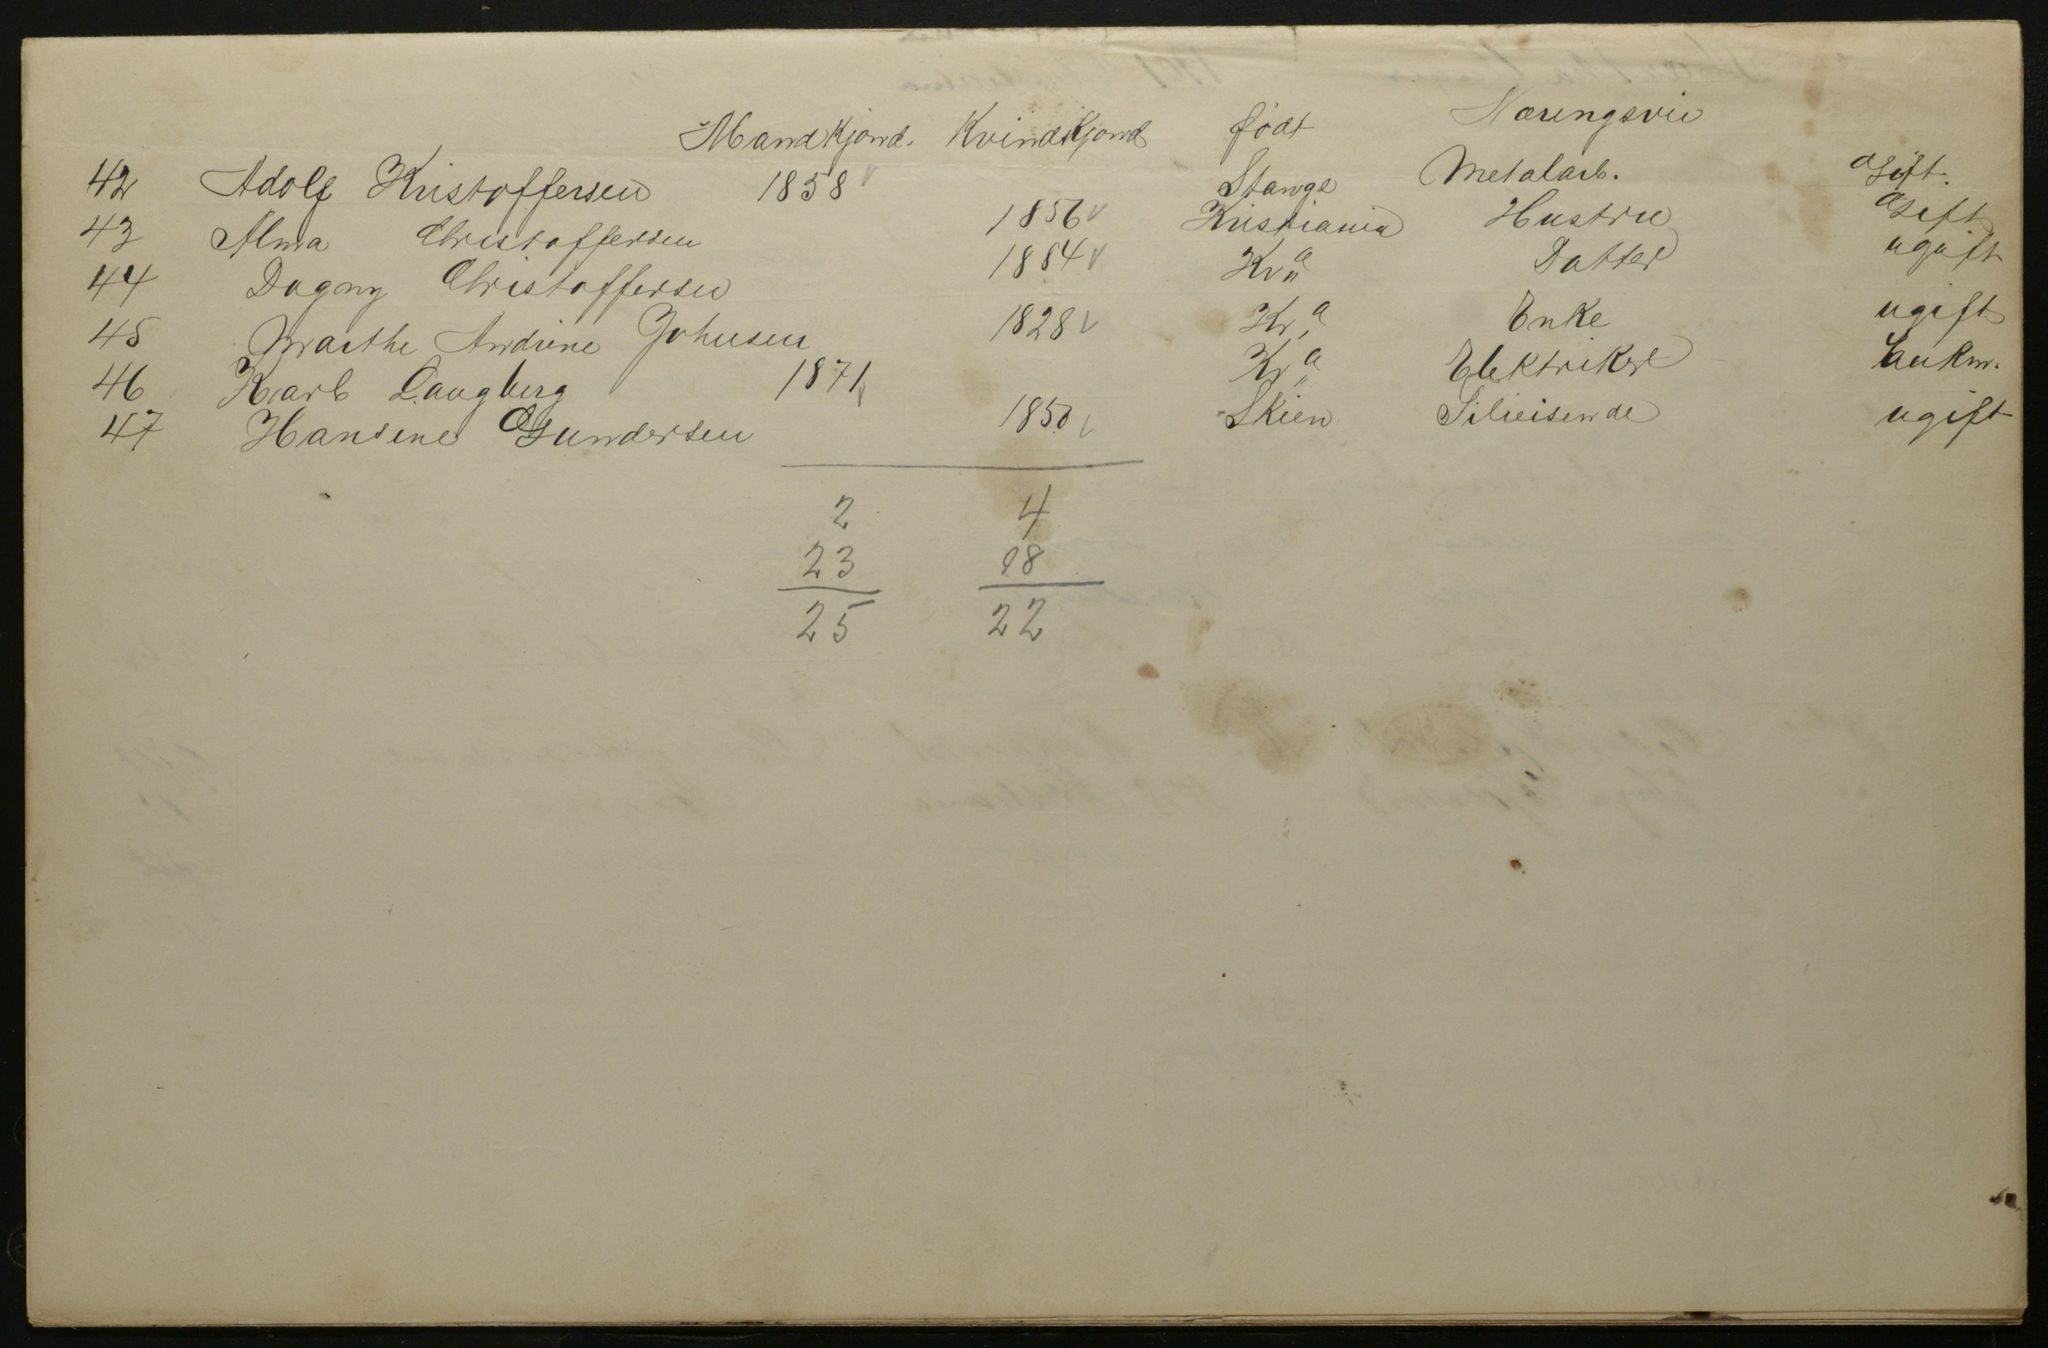 Mandkjønd. Kvindekjønd født Næringsvei
42 Adolf Kristoffersen 1858 Stange Metalarb. Gift.
43 Alma Christoffersen 1856 Kristiania Hustru Gift
44 Dagny Christoffersen 1884 Kra Datter ugift
45 Marthe Andrine Johnsen 1828 Kra Enke ugift
46 Karl Langberg 1871 Kra Elektriker
47 Hansine Gundersen 1850 Skien ugift
2 4
23 18
25 22